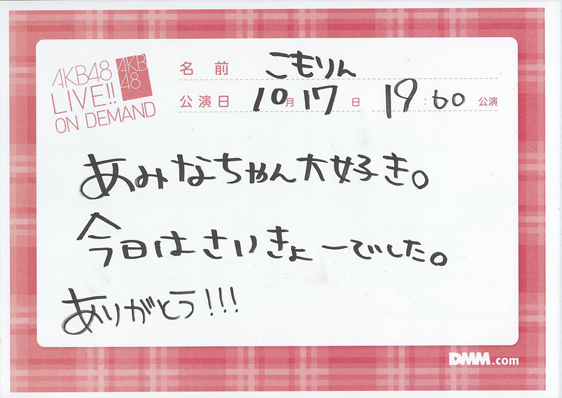 AKB48
LIVE!!
ON DEMAND
AKB
48
名前 こもりん
公演日 10月17日 19:00 公演
あみなちゃん大好き。
今日はさいきょーでした。
ありがとう!!!
DMM.com